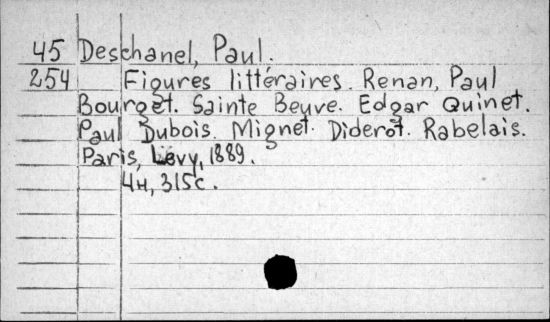 45 Deschanel, Paul.
254 Figures littéraires. Renan, Paul
Bourget. Sainte Beuve. Edgar Quinet.
Paul Dubois. Mignet. Diderot. Rabelais.
Paris, Lévy, 1889.
4н, 315с.